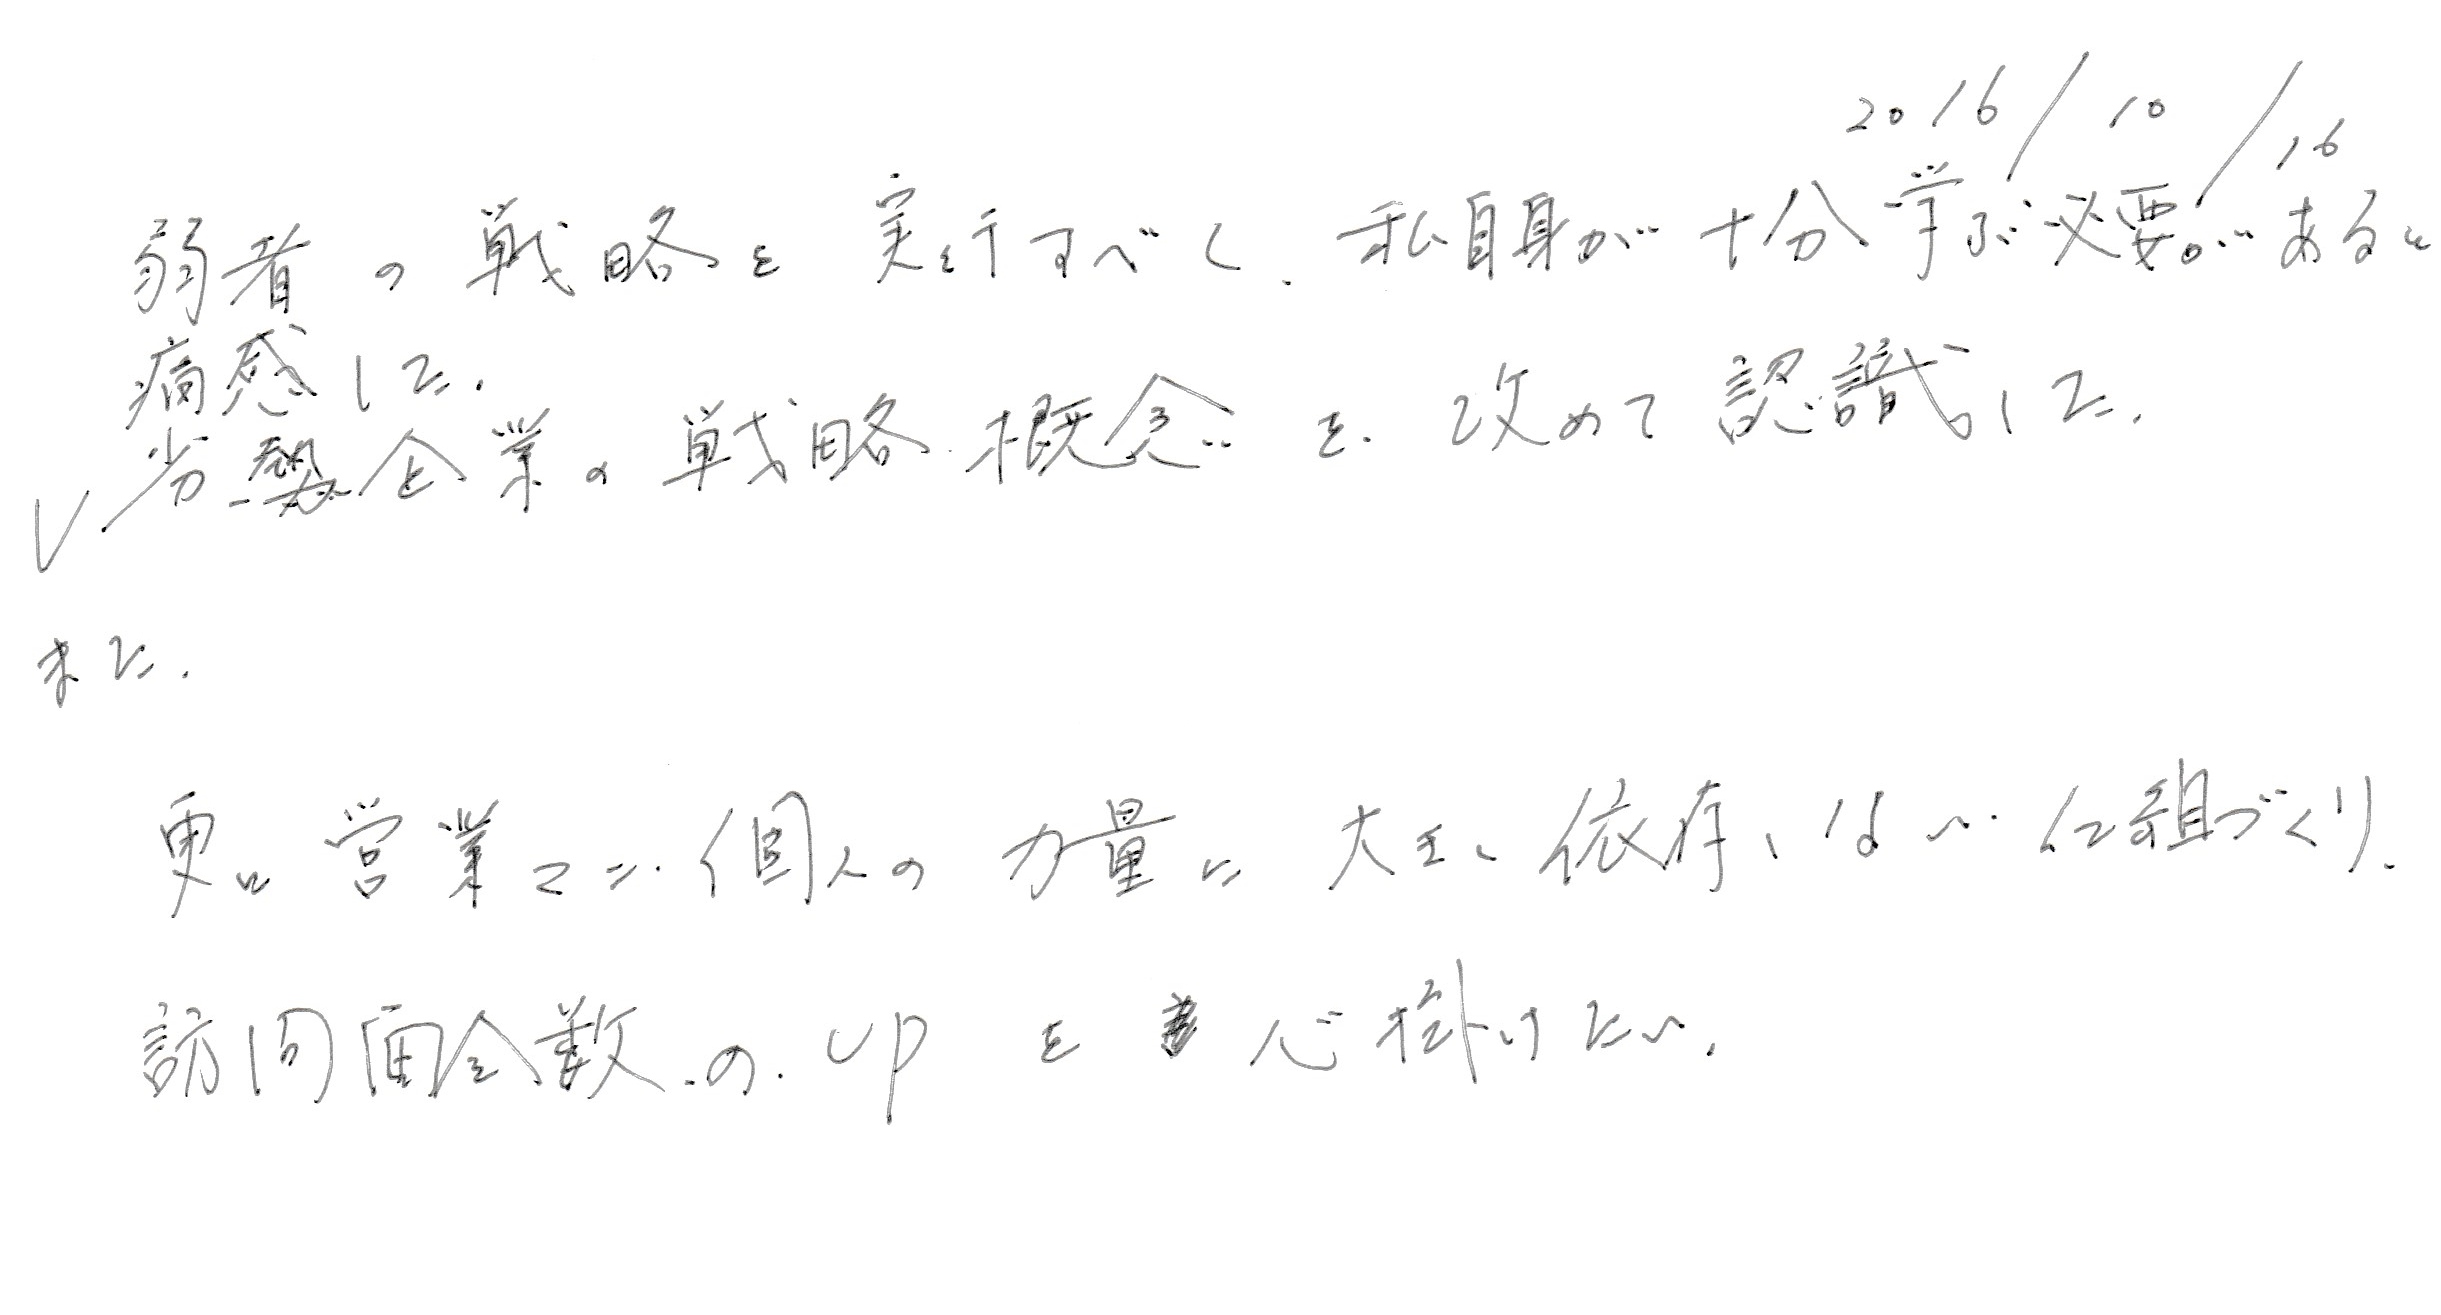 2016/10/16
弱者の戦略を実行すべく、私自身が十分学ぶ必要があると
痛感した。
劣勢企業の戦略概念を、改めて認識した。
また、
更に営業マン個人の力量に大きく依存しない仕組づくり、
訪問面会数のUPを心掛けたい。